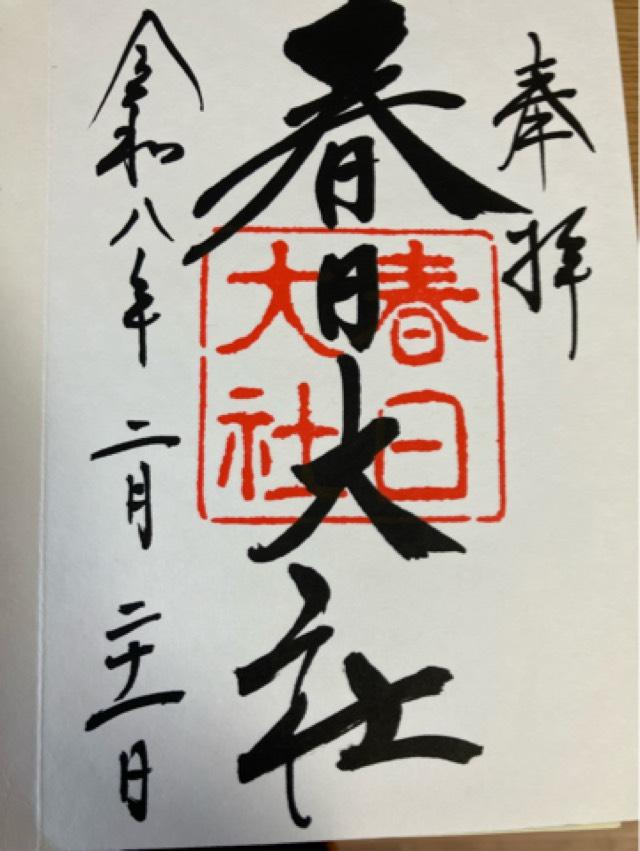 奉拝
春日大社
春日
大社
令和八年二月二十一日